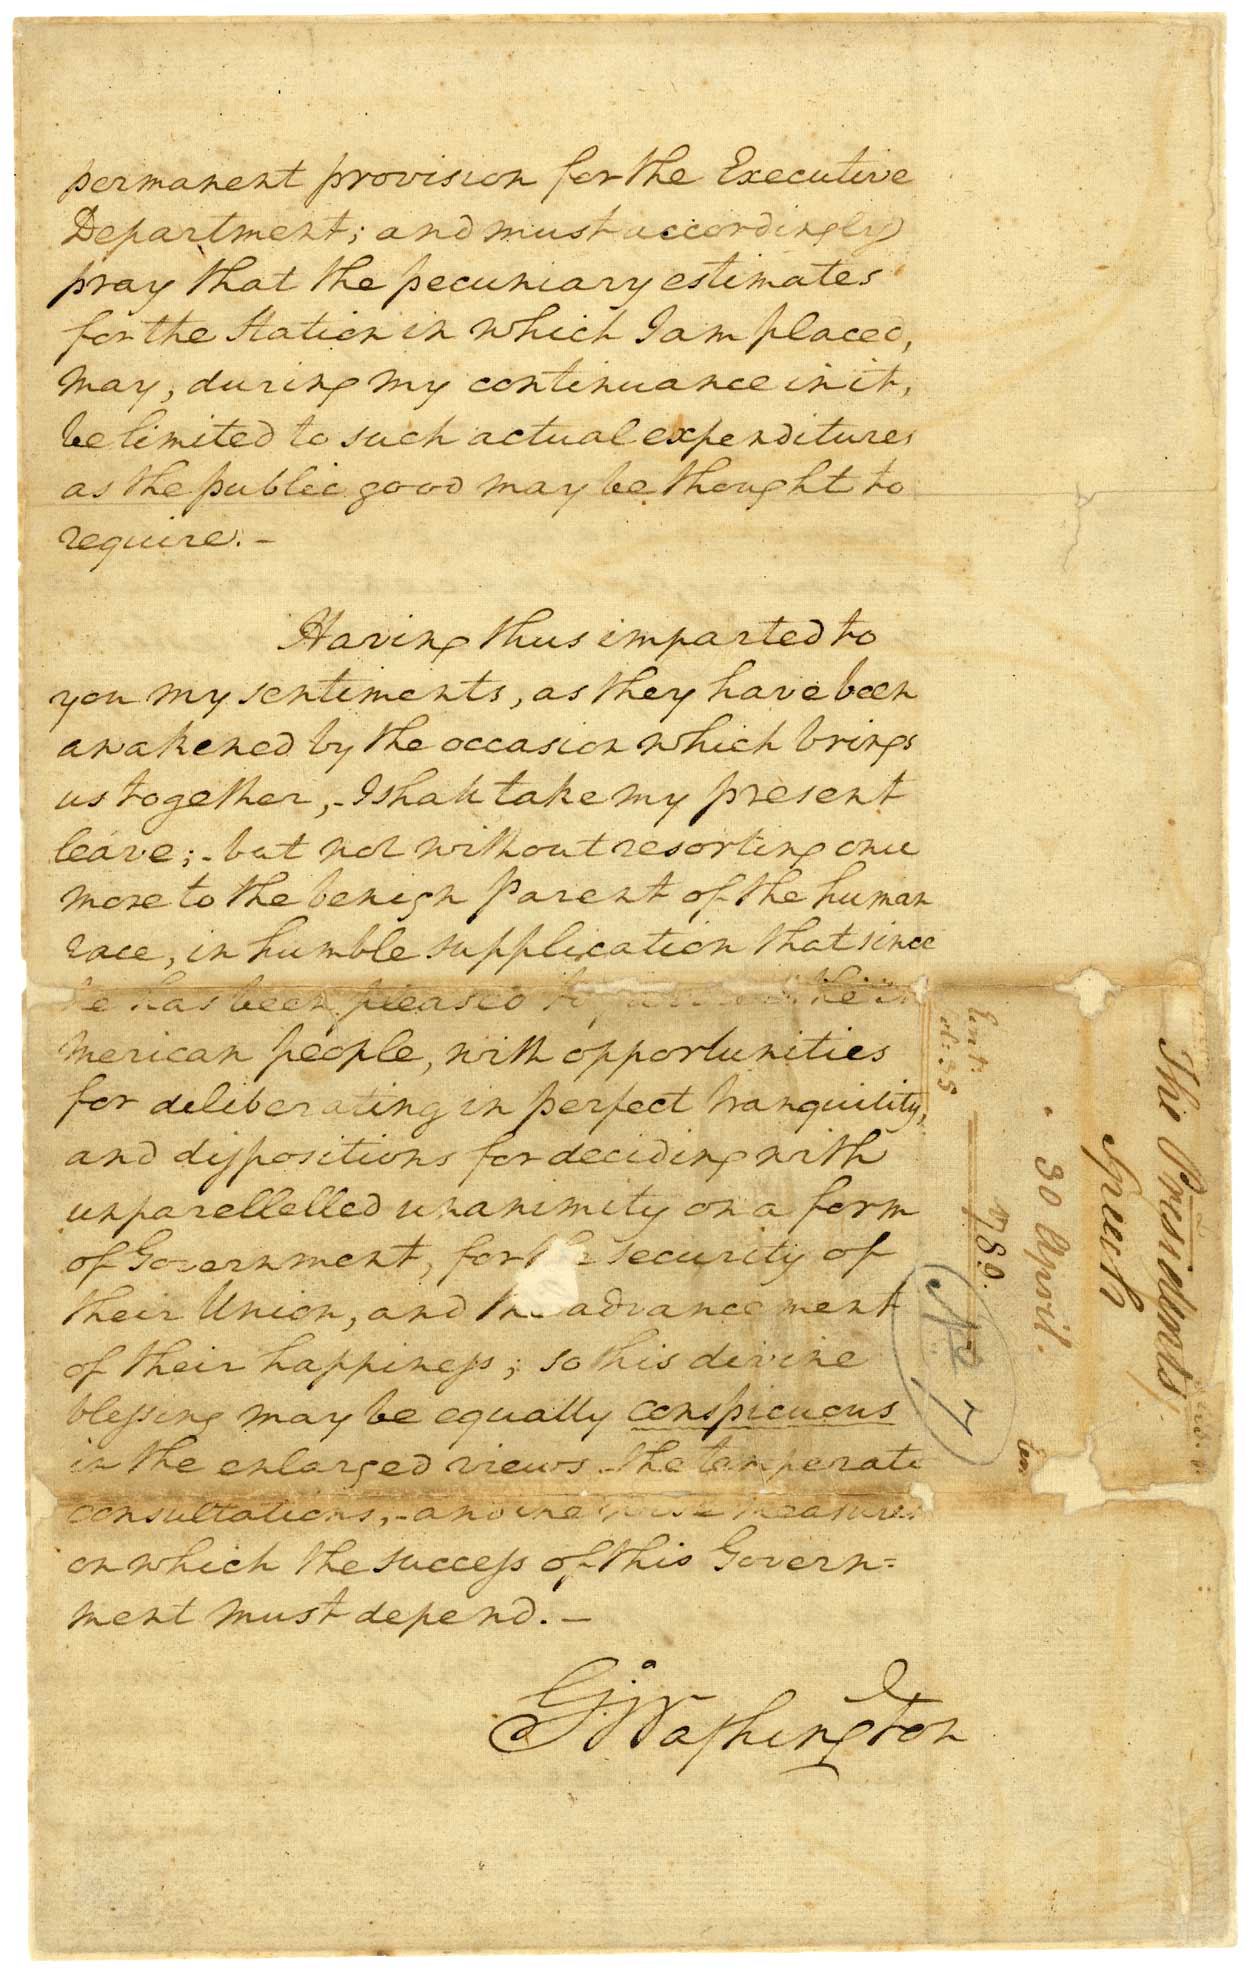 permanent provision for the Executive
Department; and must accordingly
pray that the pecuniary estimates
for the Station in which I am placed,
may, during my continuance in it,
be limited to such actual expenditures
as the public good may be thought to
require. -
Having thus imparted to
you my sentiments, as they have been
awakened by the occasion which brings
us together, - I shall take my present
leave; - but not without resorting once
more to the benign Parent of the human
race, in humble supplication that since
he has been pleased to
merican people, with opportunities
for deliberating in perfect tranquility,
and dispositions for deciding with
unparellelled unanimity on a form
of Government, for the security of
their Union, and the advancement
of their happiness; so this divine
blessing may be equally conspicuous
in the enlarged views - the temperate
consultations, - and the wise measures
on which the success of this Govern=
ment must depend. -
Go. Washington
The Presidents
Speech
30 April.
1789.
Ent.
No 7